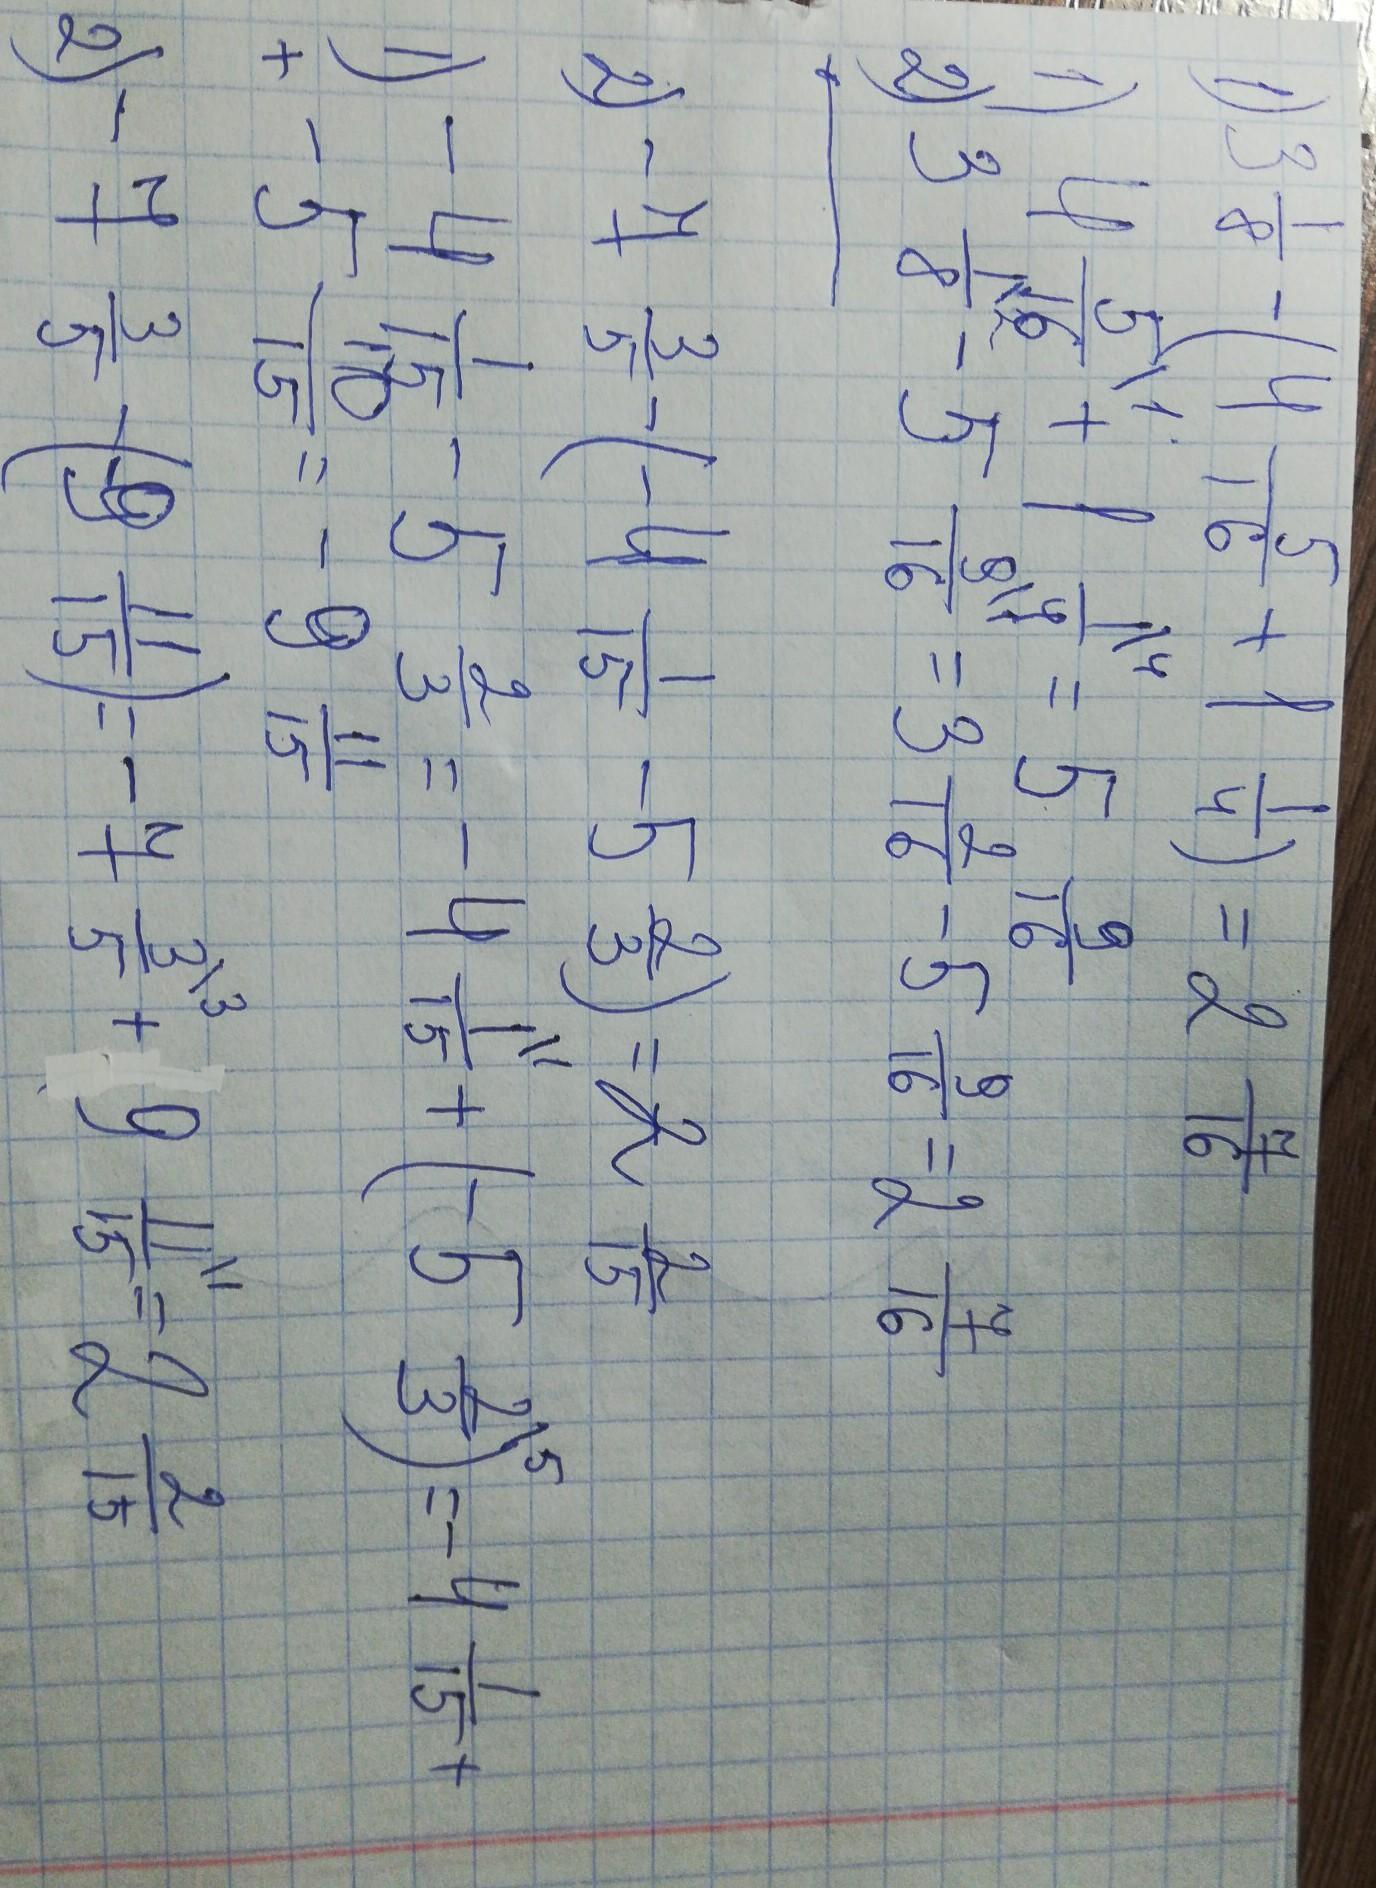 1) 3 1/8 - (4 5/16 + 1 1/4) = 2 7/16
1) 4 5\1/16 + 1 1\4/4 = 5 9/16
2) 3 1\2/8 - 5 9\1/16 = 3 2/16 - 5 9/16 = 2 7/16
2) - 7 3/5 - (- 4 1/15 - 5 2/3) = 2 2/15
1) - 4 1/15 - 5 2/3 = - 4 1\1/15 + (- 5 2\5/3) = - 4 1/15 +
+ - 5 10/15 = - 9 11/15
2) - 7 3/5 - (- 9 11/15) = - 7 3\3/5 + 9 11\1/15 = 2 2/15